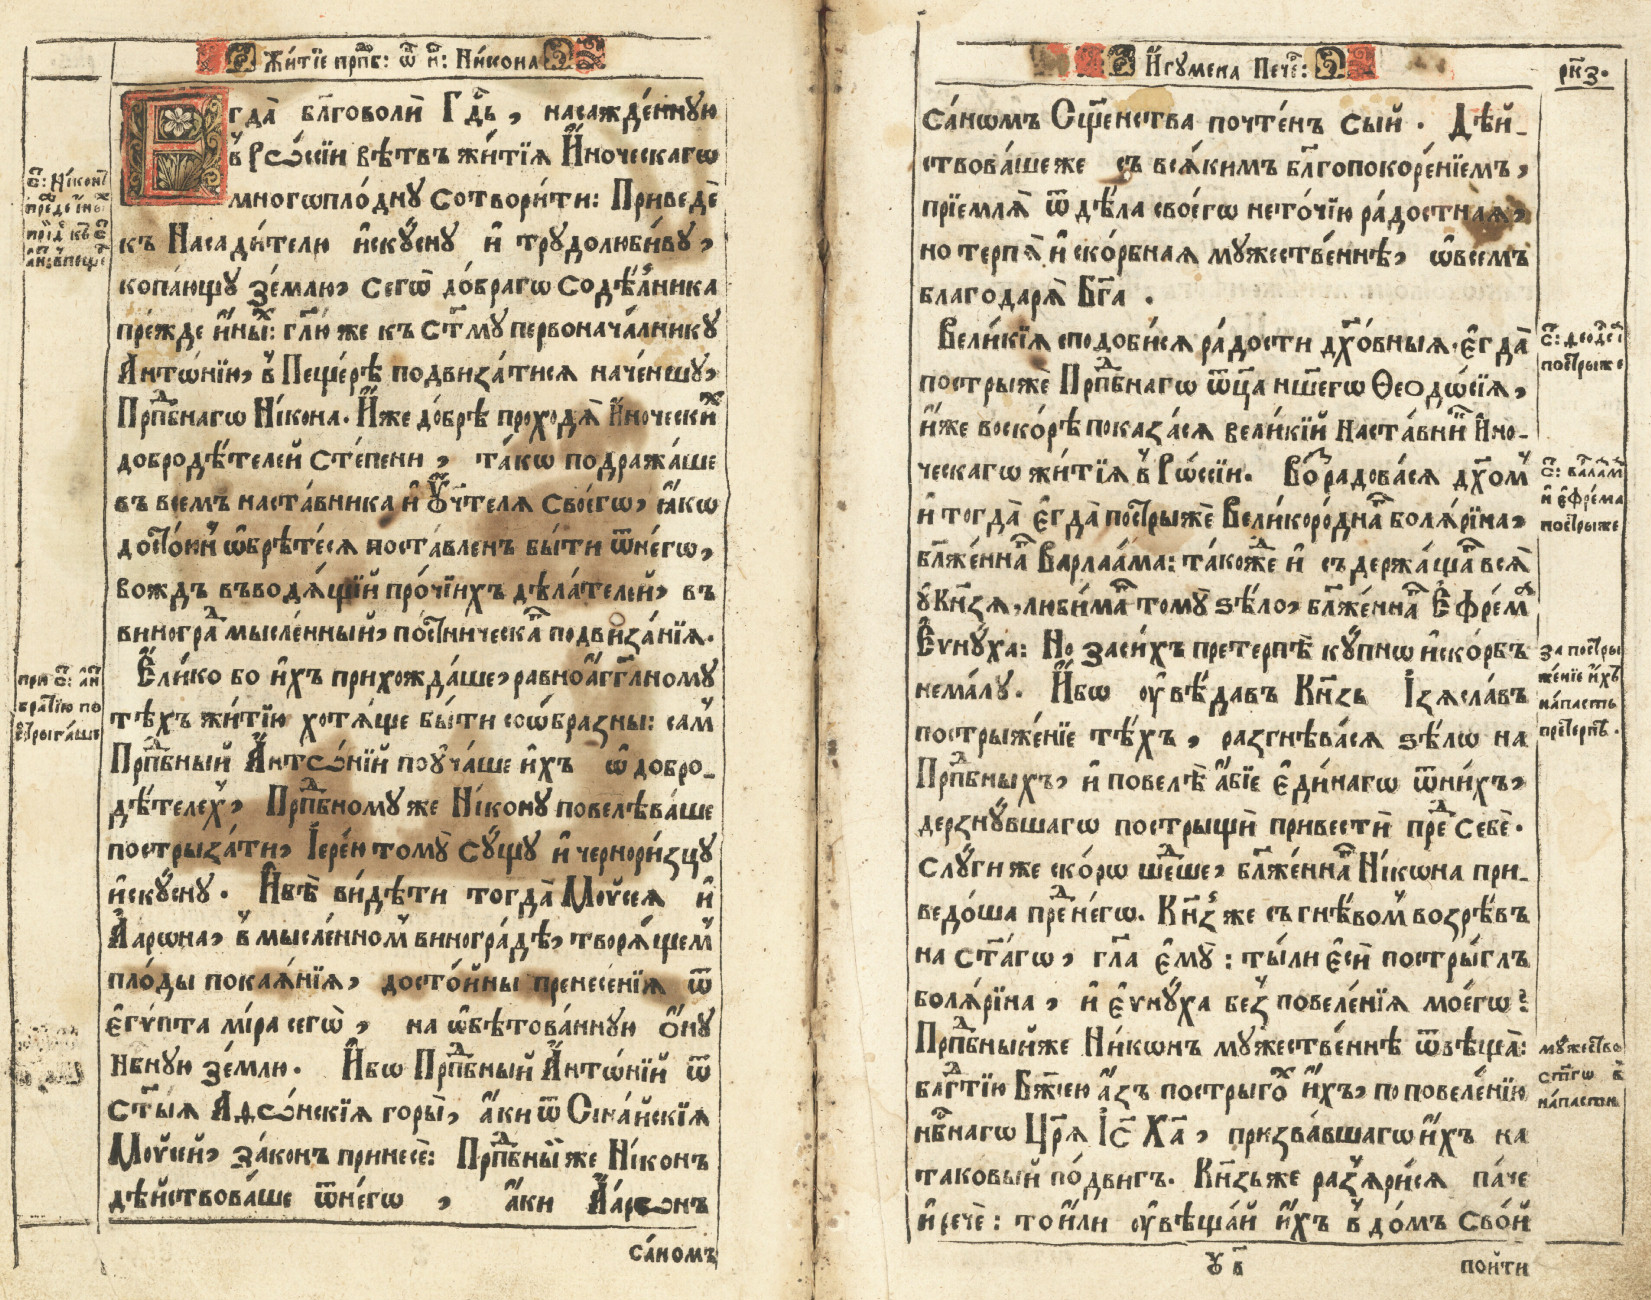 Житїе прпⷣб: ѿц҃: Нікона
Егда̀ бл҃говолѝ Гдⷭ҇ь , насажде́нную
в̾ Рѡссіи вѣтвь житїѧ И҆ноческагѡ
многѡпло́дну сотвори́ти: Приведѐ
къ Насади́телю и҆скꙋ́сну и҆ трудолюби́ву,
копа́ющꙋ зе́млю, сегѡ̀ до́брагѡ Содѣ́лника
пре́жде и҆ныⷯ: гл҃ю же къ ст҃мꙋ первонача́лникꙋ
Антѡ́нїю, в̾ Пеще́рѣ подвиза́тисѧ наче́ншꙋ,
Прпⷣбнагѡ Нікона. И҆́же до́брѣ проходѧ̀ И҆ноческиⷯ
добродѣ́телей сте́пени , та́кѡ подража́ше
въ всемъ наста́вника и҆ оу҆чⷭ҇телѧ своегѡ̀, ꙗ҆́кѡ
досто́йнъ ѡ҆брѣ́тесѧ поста́вленъ бы́ти ѿнегѡ̀,
вождь въводѧ́щїй про́чїихъ дѣ́лателей, въ
виногра́ⷣ мы́сленный, по́стническаⷢ подвиза́нїѧ.
Е҆ли́ко бо и҆хъ прихожда́ше, равноа҆́гг҃лномꙋ
тѣхъ житїю хотѧ́ще бы́ти соѡ́бразны: саⷨ
Прпⷣбный А҆нтѡ́нїй поꙋча́ше и҆хъ ѡ҆ добро-
дѣ́телеⷯ, Прпⷣбномꙋже Ні́конꙋ повелѣва́ше
постриза́ти, І҆ере́ю томꙋ̀ сꙋ́щꙋ и҆ черноризцꙋ
и҆скꙋ́снꙋ . Ꙗ҆вѣ̀ ви́дѣти тогда̀ Моѵсеа и҆
А҆арѡна, в̾ мы́сленномъ виногра́дѣ, творѧ́щеⷨ
плоды̀ покаѧ́нїѧ, досто́йны пренесе́нїѧ ѿ
Е҆гѵ́пта мі́ра сегѡ̀ , на ѡ҆бѣтова́нную о҆́нꙋ
Нбⷭ҇нꙋю зе́млю . И҆́бо Прпⷣбный А҆нтѡ́нїй ѿ
ст҃ыѧ Аѳѡ́нскїѧ горы̀, а҆́ки ѿ Сїна́йскїѧ
Моѵсе́й, зако́нъ принесѐ: Прпⷣбный же Ні́конъ
дѣ́йствова́ше ѿнегѡ̀ , а҆́ки А҆арѡ́нъ
са́номъ
прⷤде и҆ныⷯ
прⷤи ст҃: а҆нⷮ
бра́тїю по
стрыга́ше
И҆гꙋмена Печеⷬ:
рк҃з.
са́номъ Сщ҃е́нства почте́нъ сый . Дѣй-
ствова́шеже съ всѧ́кимъ бл҃гопокоре́нїемъ,
прїемлѧ̀ ѿ дѣ́ла своегѡ̀ нето́чїю ра́достнаѧ,
но терпѧ̀ и҆ ско́рбнаѧ мꙋжестве́ннѣ, ѡ҆всемъ
благодарѧ̀ Бг҃а .
Вели́кїѧ сподо́бисѧ ра́дости дх҃о́вныѧ, е҆гда̀
пострижѐ Прпⷣбнагѡ ѿц҃а нш҃егѡ Ѳеодѡ́сїѧ,
и҆́же воско́рѣ показа́сѧ вели́кїй Наста́вниⷦ И҆но-
ческагѡ житїѧ в̾ Рѡ́ссїи. Возрадова́сѧ дх҃оⷨ
и҆ тогда̀ е҆гда̀ пострижѐ Великоро́днаⷢ болѧ́рїна,
бл҃же́ннаⷢ Варлаа́ма: та́кожⷣе и҆ съдержа́щаⷢ всѧ̀
у҆ Кн҃зѧ, люби́маⷢ томꙋ̀ ѕѣлѡ̀, бл҃же́ннаⷢ Е҆фре́ма
Е҆ѵнꙋ́ха: Но за си́хъ претерпѣ̀ кꙋ́пнѡ и҆ско́рбь
нема́лꙋ. И҆́бо оу҆вѣ́давъ Кн҃зь І҆зѧсла́въ
постриже́нїе тѣ́хъ , разгнѣва́сѧ ѕѣ́лѡ на
Прпⷣбныхъ, и҆ повелѣ̀ а҆́бїе е҆ди́нагѡ ѿни́хъ,
дерзнꙋ́вшагѡ пострищѝ привестѝ преⷣ себѐ.
Слꙋгиже ско́рѡ шеⷣше, бл҃же́ннаⷢ Ні́кѡна при-
ведо́ша преⷣнегѡ. Кн҃зь же съ гнѣ́вомъ возрѣ́въ
на ст҃а́гѡ , гл҃а е҆мꙋ̀ : ты́ли е҆сѝ постры́глъ
болѧ́рїна , и҆ е҆ѵнꙋ́ха без̾ повеле́нїѧ моегѡ̀ ?
Прпⷣбныйже Ни́кѡнъ мꙋжестве́ннѣ ѿвѣща̀:
бл҃гⷣтїю Бж҃їею а҆́зъ постригоⷯ и҆́хъ, по повеле́нїю
нбⷭ҇нагѡ Цр҃ѧ І҆с҃ Хⷭ҇а , призва́вшагѡ и҆́хъ на
таковый по́двигъ. Кн҃зьже раз̾ѧри́сѧ па́че
и҆ речѐ : то и҆́ли оу҆вѣща́й и҆́хъ в̾ до́мъ свой
ст҃: Ѳеодоⷭ
пострыже
ст҃: варлаⷨ
и҆ е҆фре́ма
пострыже
за постри
же́нїе и҆́хъ
на́пасть
претерпѣ̀ .
мꙋ́жество
ст҃гѡ в̾
на́пасти
у҃ в҃
пойти